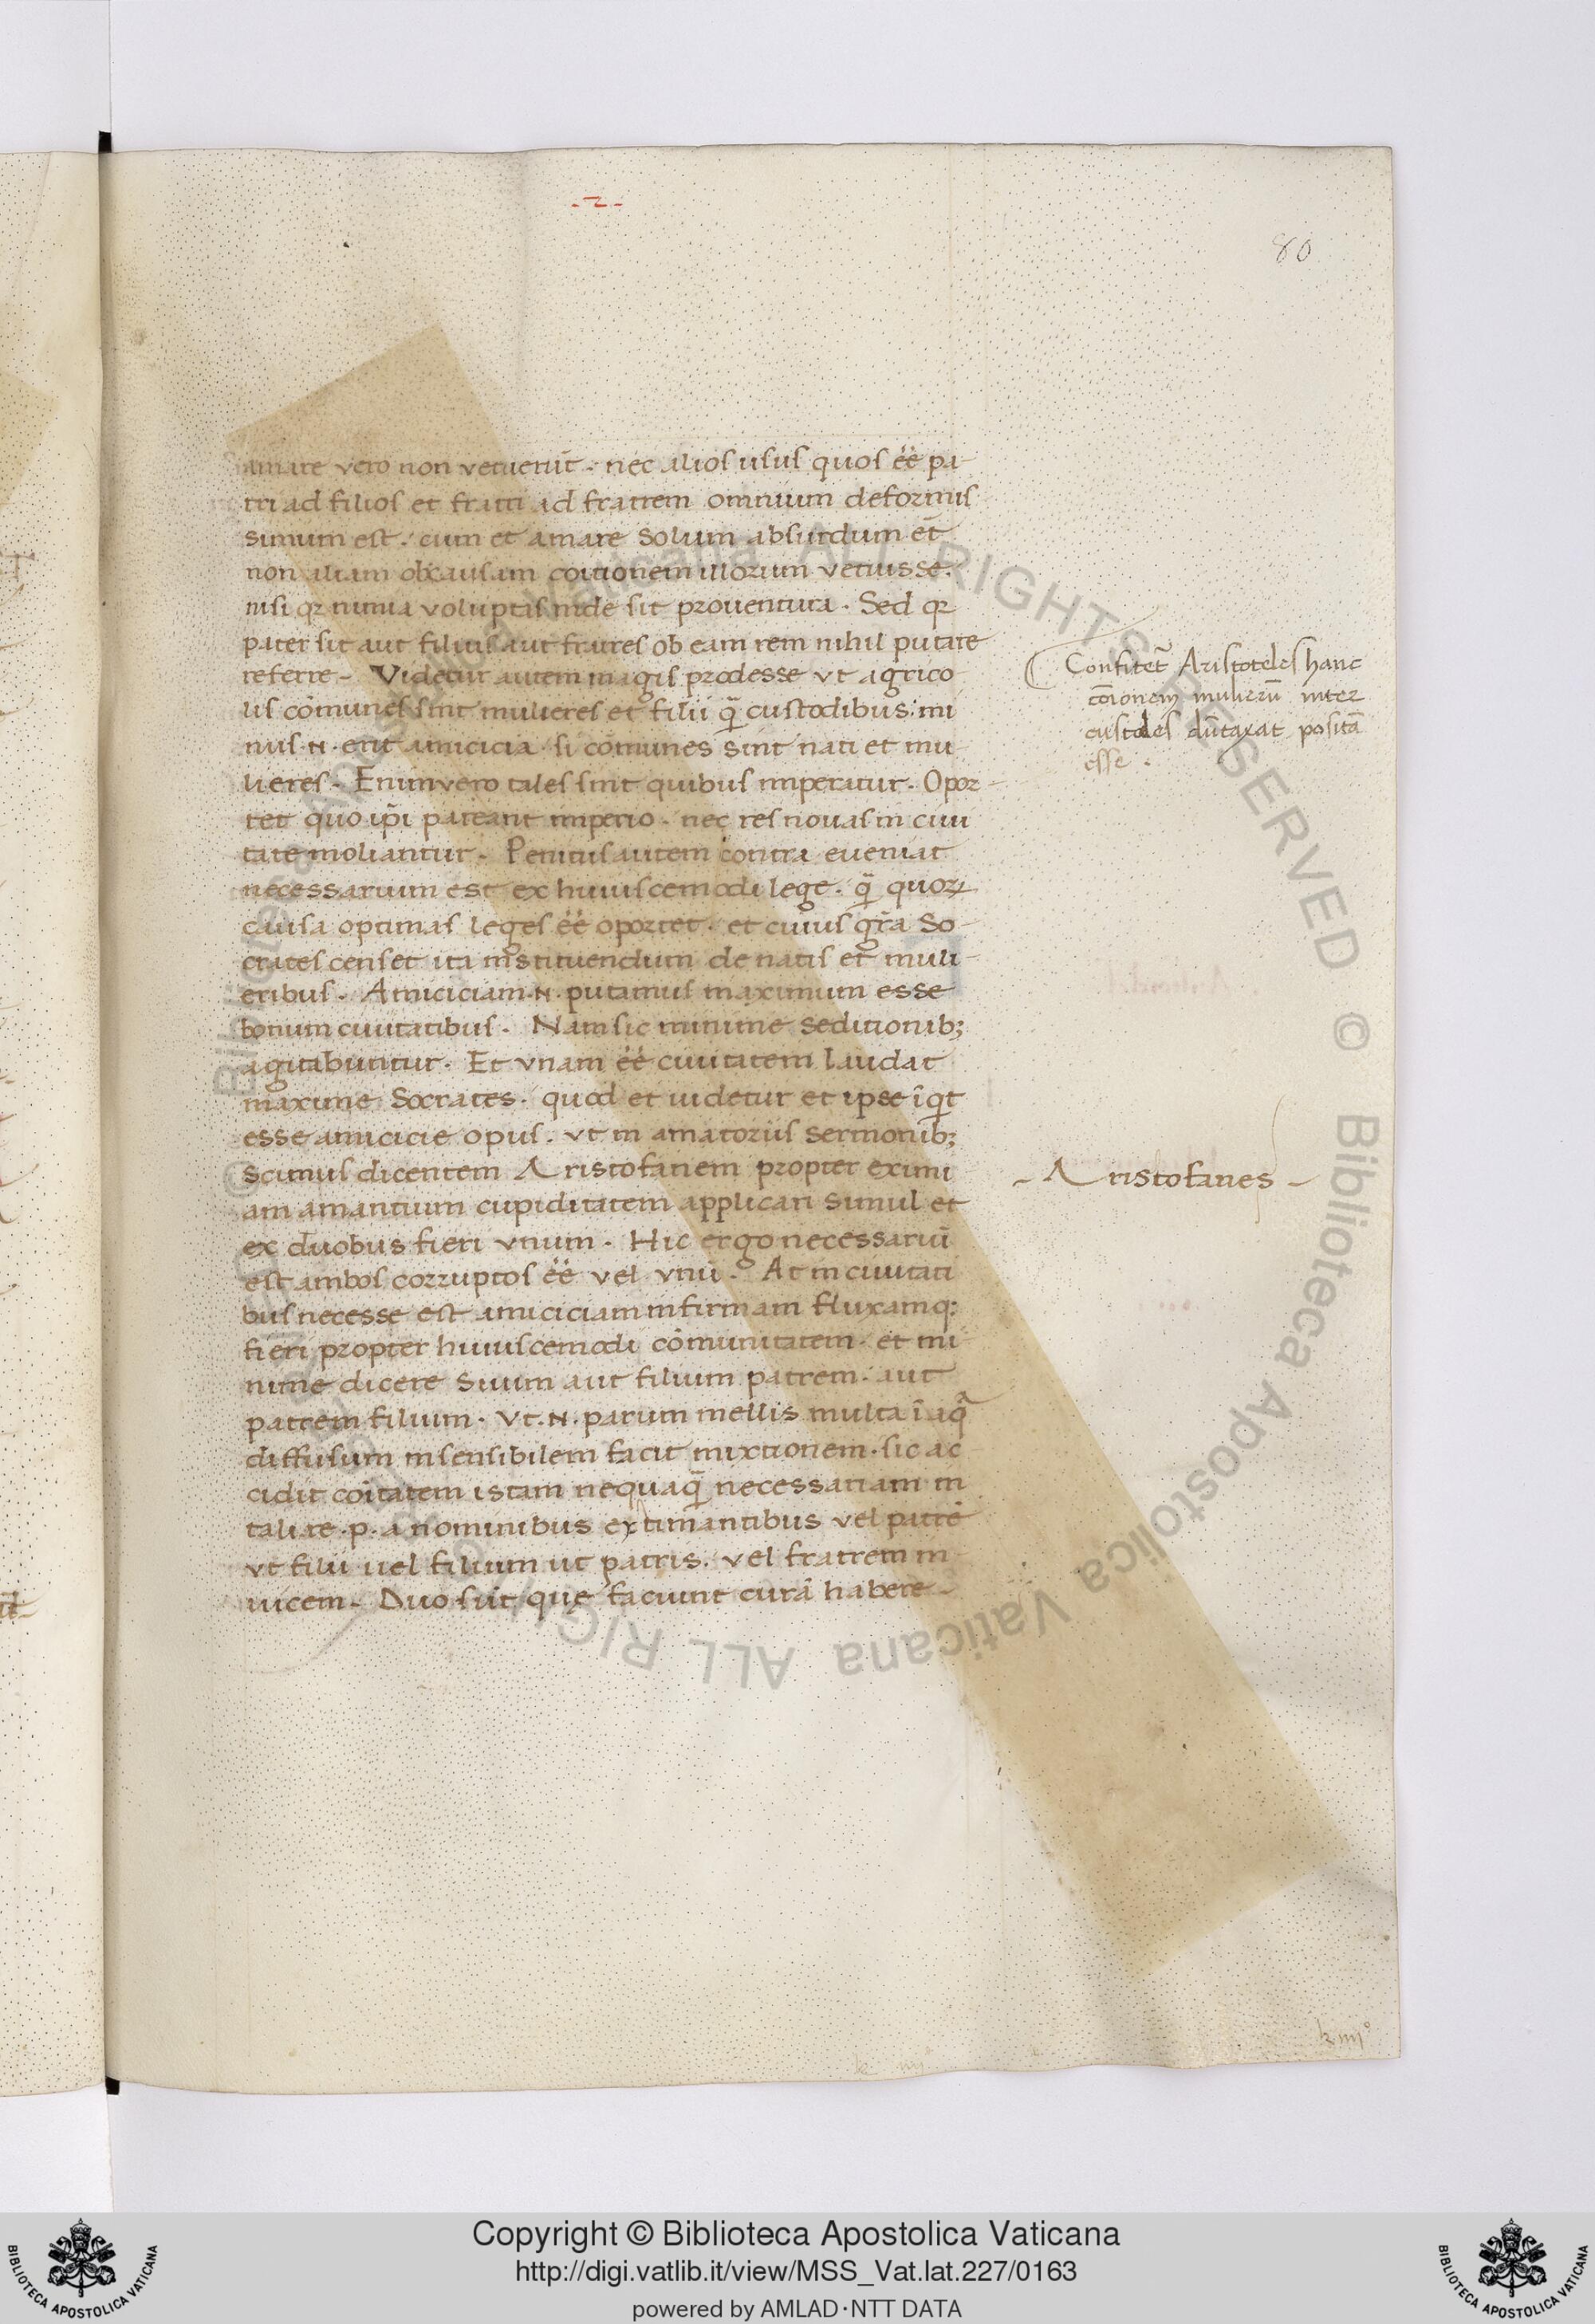 -2-
80
amare vero non vetuerūt. nec alios usus quos ēē pa
tri ad filios et fratri ad fratrem omnium deformis
simum est. cum et amare solum absurdum et
non aliam ob causam coitionem illorum vetuisse.
nisi qꝛ nimia voluptas inde sit proventura. Sed qꝛ
pater sit aut filius aut fratres ob eam rem nihil putare
referre. Videtur autem magis prodesse vt agrico
lis cōmunes sint mulieres et filii q̄ custodibus: mi
nus .N. erit amicicia si cōmunes sint nati et mu
lieres. Enimvero tales sint quibus imperatur. Opor
tet quo ip̄i pareant imperio. nec res novas in ciui
tate moliantur. Penitus autem contra eveniat
necessarium est ex huiuscemodi lege. q̄ quoꝝ
causa optimas leges ēē oportet. et cuius gr̄a So
crates censet ita instituendum de natis et muli
eribus. Amiciciam .N. putamus maximum esse
bonum ciuitatibus. Nam sic minime seditionib;
agitabuntur. Et vnam ēē ciuitatem laudat
maxime Socrates. quod et uidetur et ipse īqt
esse amicicie opus. vt in amatoriis sermonib;
scimus dicentem Aristofanem propter eximi
am amantium cupiditatem applicari simul et
ex duobus fieri vnum. Hic ergo necessariū
est ambos corruptos ēē vel vnū. At in ciuitati
bus necesse est amiciciam infirmam fluxamq;
fieri propter huiuscemodi cōmunitatem. et mi
nime dicere suum aut filium patrem. aut
patrem filium. Vt .N. parum mellis multa ī aq̄
diffusum insensibilem facit mixtionem. sic ac
cidit cōitatem istam nequaq̄ necessariam in
tali re .p. a nominibus extimantibus vel patrē
vt filii uel filium ut patris. vel fratrem in
uicem. Duo sūt quę faciunt curā habere
Confitet̄ Aristoteles hanc
cōīonem mulierū inter
custodes dūtaxat positā
esse.
- Aristofanes -
k iiij°
k iiij°
© Biblioteca Apostolica Vaticana ALL RIGHTS RESERVED © Biblioteca Apostolica Vaticana ALL RIGHTS
BIBLIOTECA APOSTOLICA VATICANA
Copyright © Biblioteca Apostolica Vaticana
http://digi.vatlib.it/view/MSS_Vat.lat.227/0163
powered by AMLAD·NTT DATA
BIBLIOTECA APOSTOLICA VATICANA